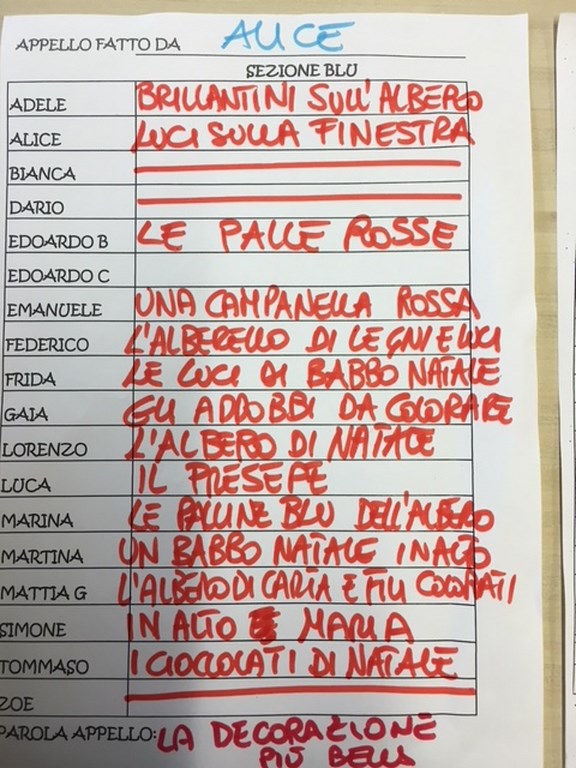 APPELLO FATTO DA ALICE
SEZIONE BLU
ADELE BRILLANTINI SULL'ALBERO
ALICE LUCI SULLA FINESTRA
BIANCA
DARIO
EDOARDO B LE PALLE ROSSE
EDOARDO C
EMANUELE UNA CAMPANELLA ROSSA
FEDERICO L'ALBERELLO DI LEGNI E LUCI
FRIDA LE LUCI DI BABBO NATALE
GAIA GLI ADDOBBI DA COLORARE
LORENZO L'ALBERO DI NATALE
LUCA IL PRESEPE
MARINA LE PALLINE BLU DELL'ALBERO
MARTINA UN BABBO NATALE IN ALTO
MATTIA G L'ALBERO DI CARTA E FILI COLORATI
SIMONE IN ALTO MARIA
TOMMASO I CIOCCOLATI DI NATALE
ZOE
PAROLA APPELLO: LA DECORAZIONE
PIÙ BELLA